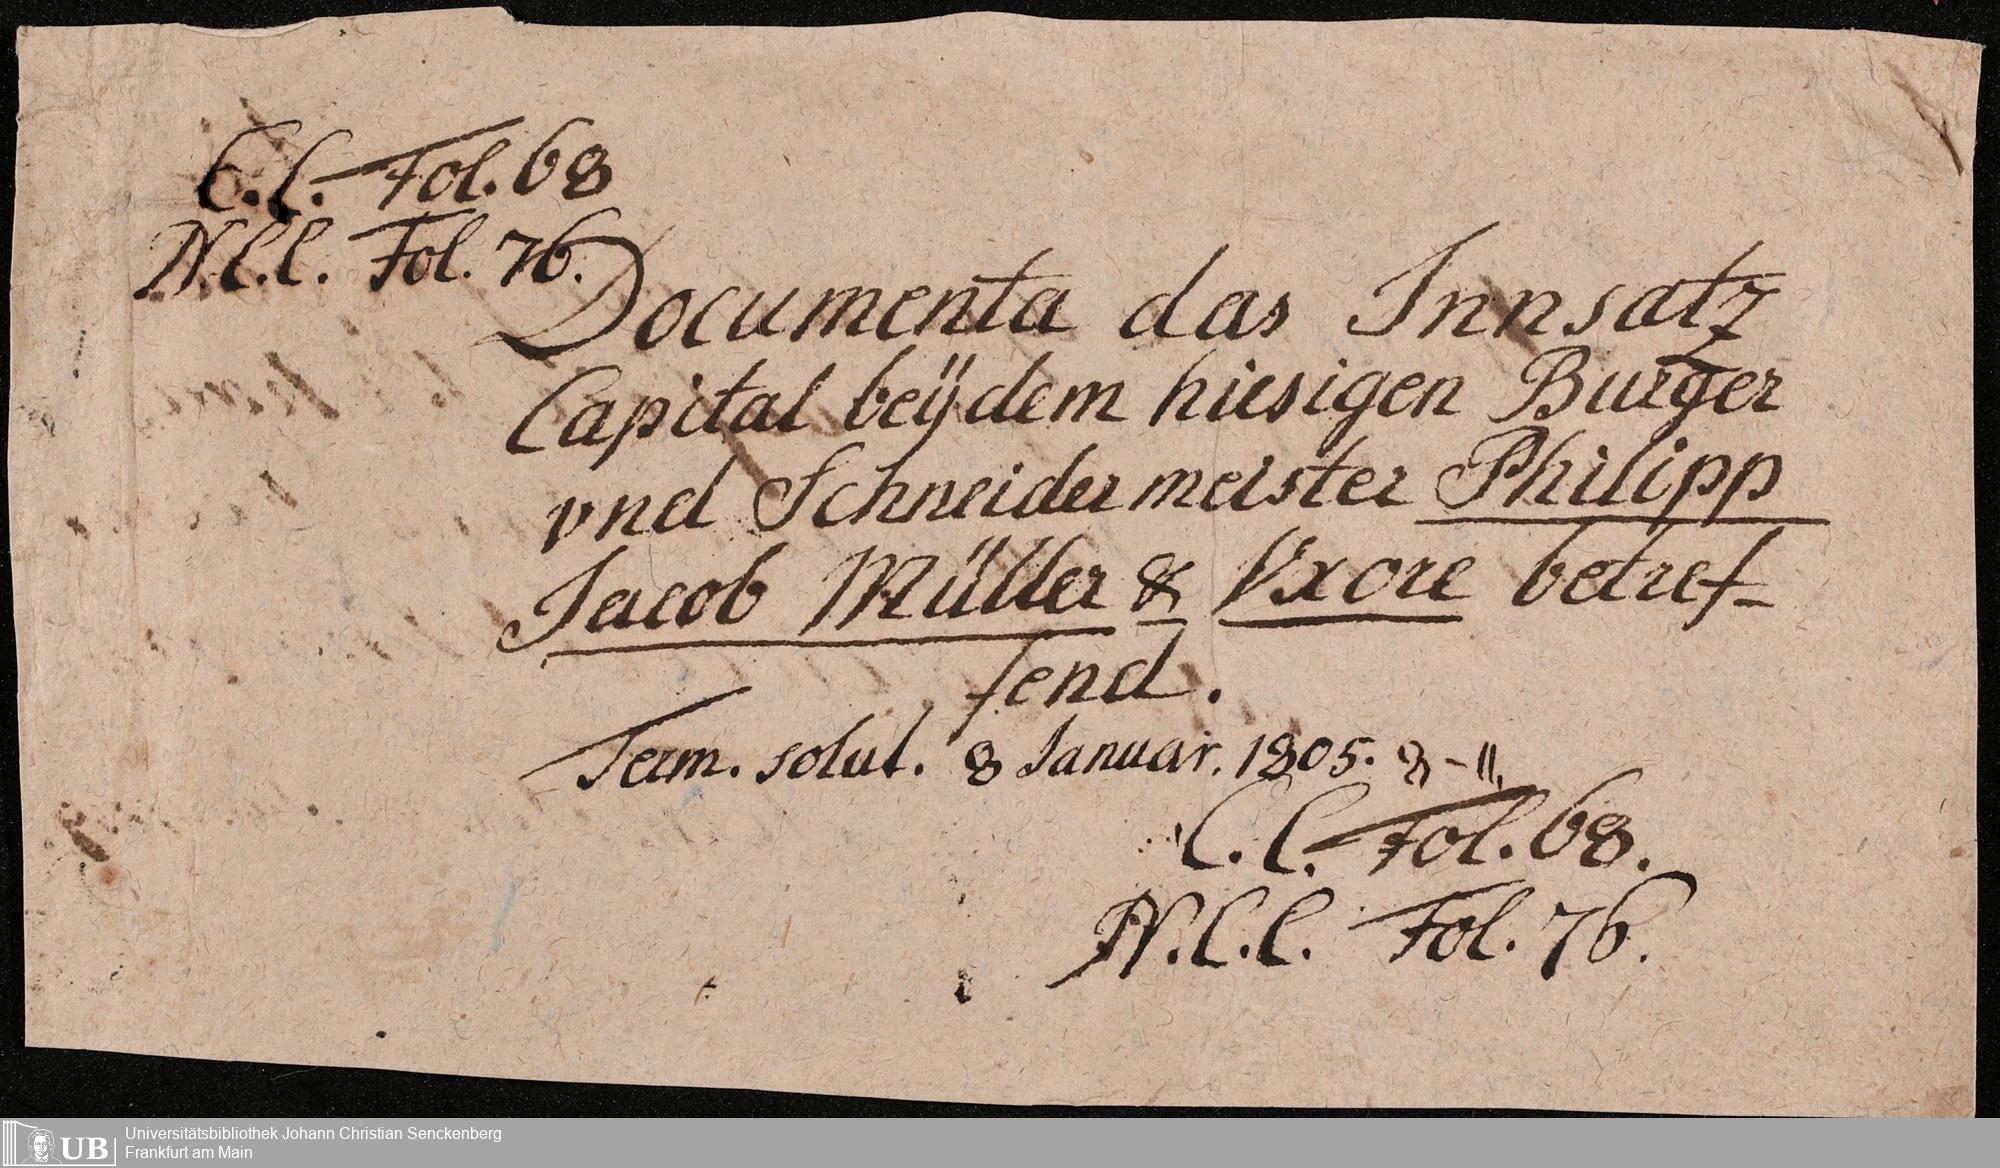 C. C. Fol. 68
N. C. C. Fol. 76.
Documenta das Innsatz
Capital beÿ dem hiesigen Burger
vnd Schneidermeister Philipp
Jacob Müller & Vxore betref-
fend.
Term. solut. 8 Januar. 1805.
C. C. Fol. 68.
N. C. C. Fol. 76.
UB
Universitätsbibliothek Johann Christian Senckenberg
Frankfurt am Main